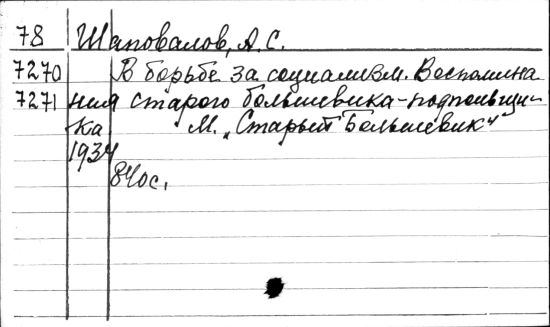 78 Шаповалов, А.С.
7270 В борьбе за социализм. Воспомина
7271 ния старого большевика-подпольщи-
ка М. „Старый Большевик"
1934
840с.